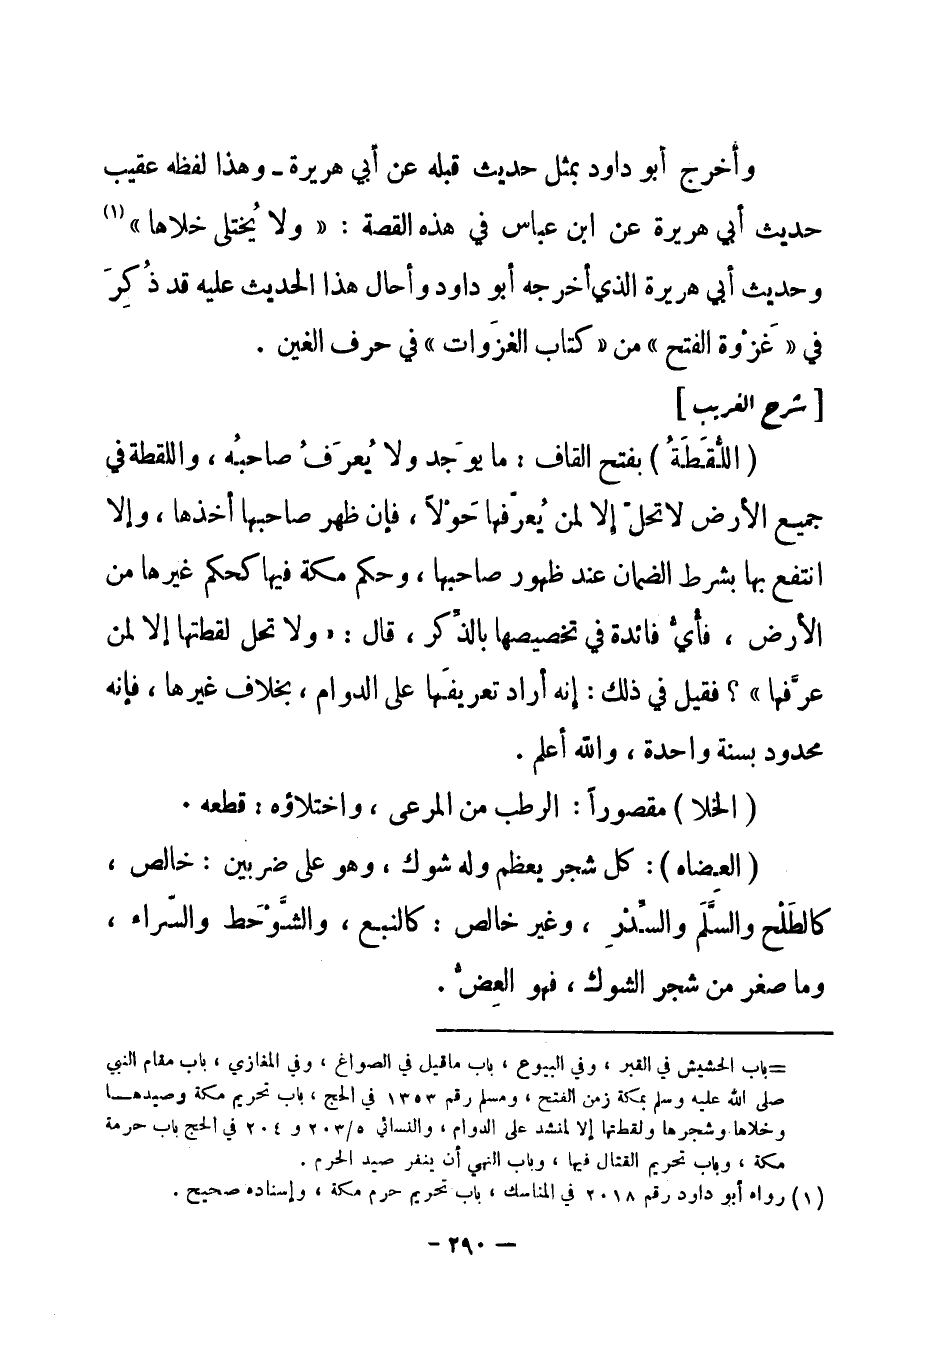 وأُخرج أبو داود بمثل حديث قبله عن أبي هريرة ـ وهذا لفظه عقيب
حديث أبي هريرة عن ابن عباس في هذه القصة : « ولا يُختلى خلاها »(١)
وحديث أبي هريرة الذي أخرجه أبو داود وأحال هذا الحديث عليه قد ذُكِرَ
في « غَزْوة الفتح » من « كتاب الغزَوات » في حرف الغين .
[ شرح الغريب ]
( اللُّقَطَةُ ) بفتح القاف : ما يوَجد ولا يُعرَفُ صاحبُه ، واللقطة في
جميع الأرض لا تحلّ إلا لمن يُعرّفها حَوْلاً ، فإن ظهر صاحبها أخذها ، وإلا
انتفع بها بشرط الضمان عند ظهور صاحبها ، وحكم مكة فيها كحكم غيرها من
الأرض ، فأيُّ فائدة في تخصيصها بالذِّكر ، قال : « ولا تحل لقطتها إلا لمن
عرَّفها » ؟ فقيل في ذلك : إنه أراد تعريفَها على الدوام ، بخلاف غيرها ، فإنه
محدود بسنة واحدة ، والله أعلم .
( الخلا ) مقصوراً : الرطب من المرعى ، واختلاؤه : قطعه .
( العِضاه ) : كل شجر يعظم وله شوك ، وهو على ضربين : خالص ،
كالطَلْح والسَّلَم والسِّدْرِ ، وغير خالص : كالنبع ، والشَّوْحَط والسّراء ،
وما صغر من شجر الشوك ، فهو العِضُّ .
=باب الحشيش في القبر ، وفي البيوع ، باب ماقيل في الصواغ ، وفي المغازي ، باب مقام النبي
صلى الله عليه وسلم بمكة زمن الفتح ، ومسلم رقم ١٣٥٣ في الحج ، باب تحريم مكة وصيدهـا
وخلاها وشجرها ولقطتها إلا لمنشد على الدوام ، والنسائي ٢٠٣/٥ و ٢٠٤ في الحج باب حرمة
مكة ، وباب تحريم القتال فيها ، وباب النهي أن ينفر صيد الحرم .
(١) رواه أبو داود رقم ٢٠١٨ في المناسك ، باب تحريم حرم مكة ، وإسناده صحيح .
— ٢٩٠ -